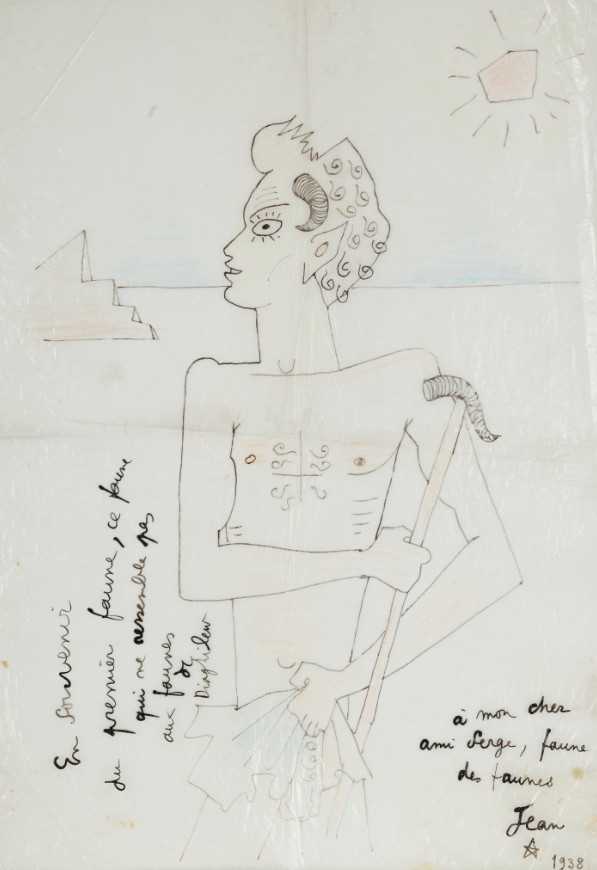 En souvenir
du premier faune, ce faune
qui ne ressemble pas
aux faunes
de
Diaghilew
à mon cher
ami Serge, faune
des faunes
Jean
1938